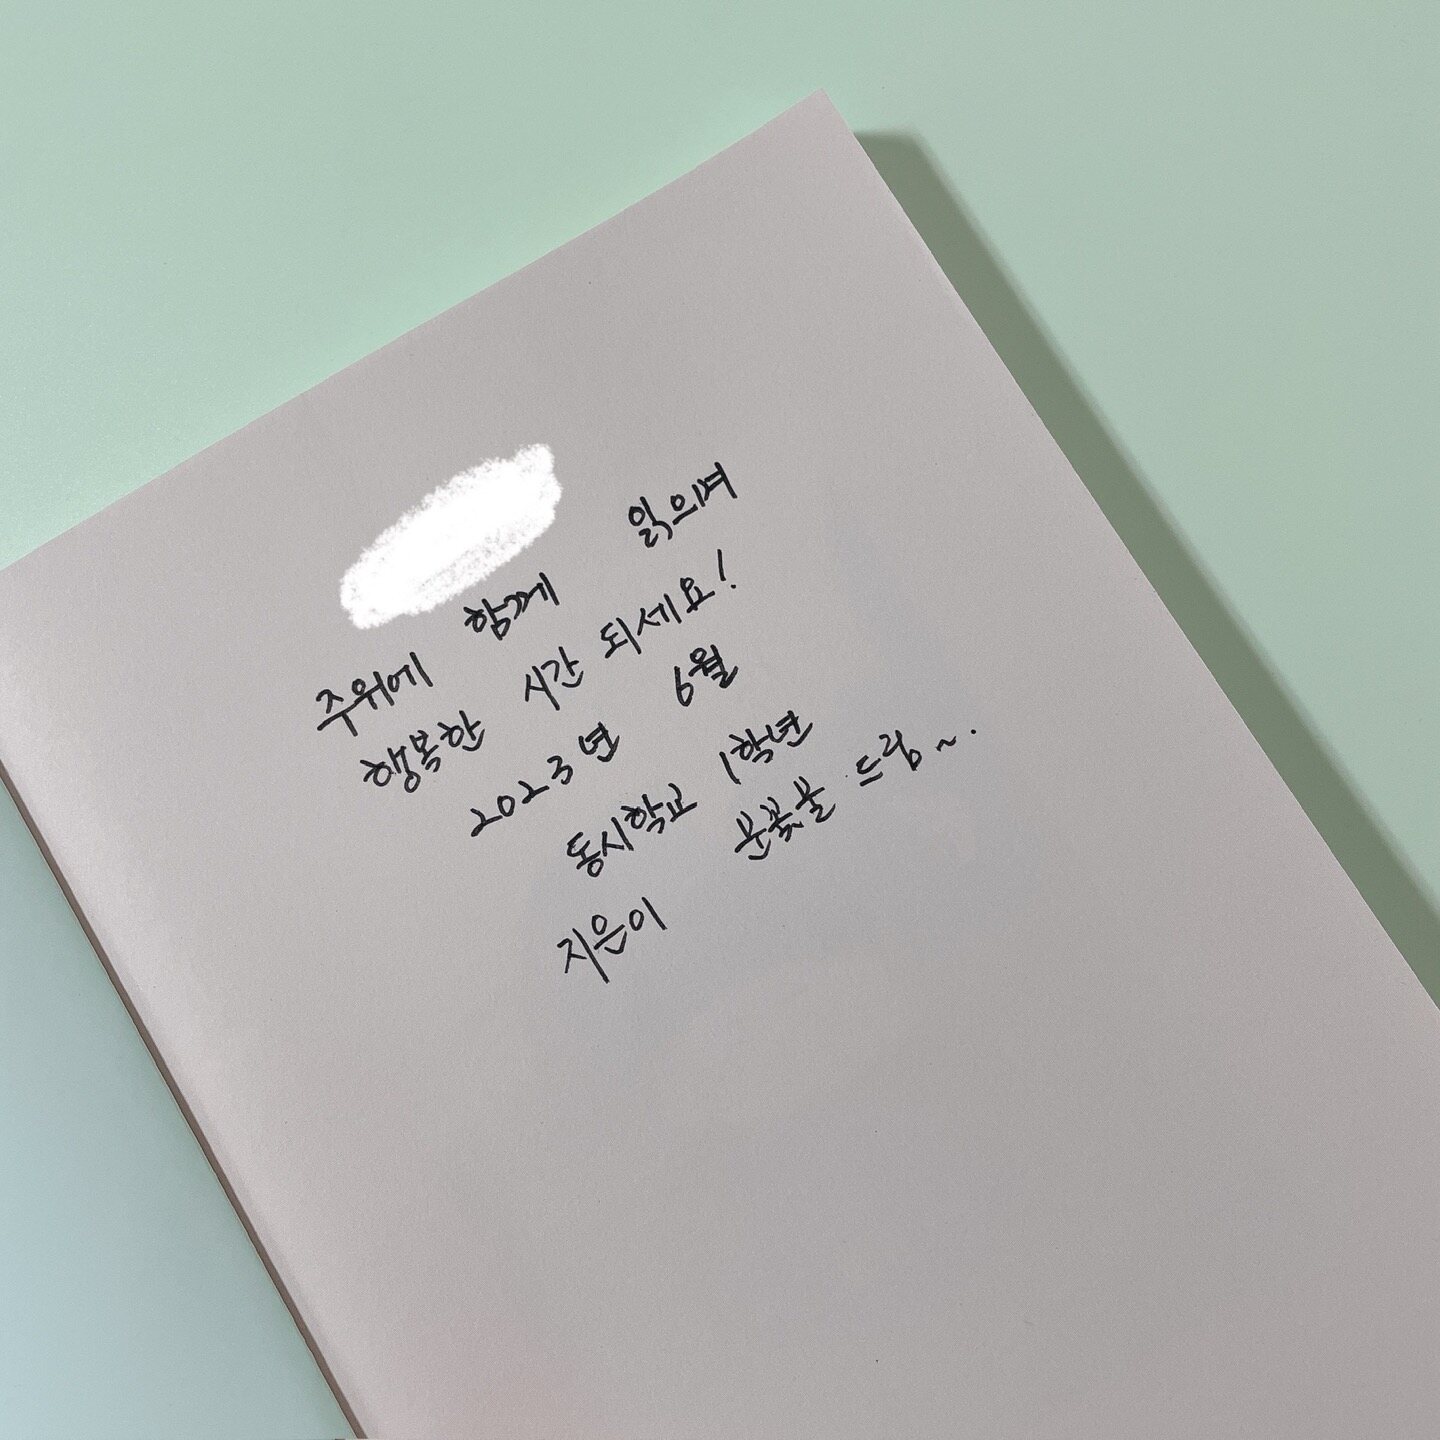 주위에 함께 읽으며
행복한 시간 되세요!
2023년 6월
동시학교 1학년
지은이 문꽃물 드림~.